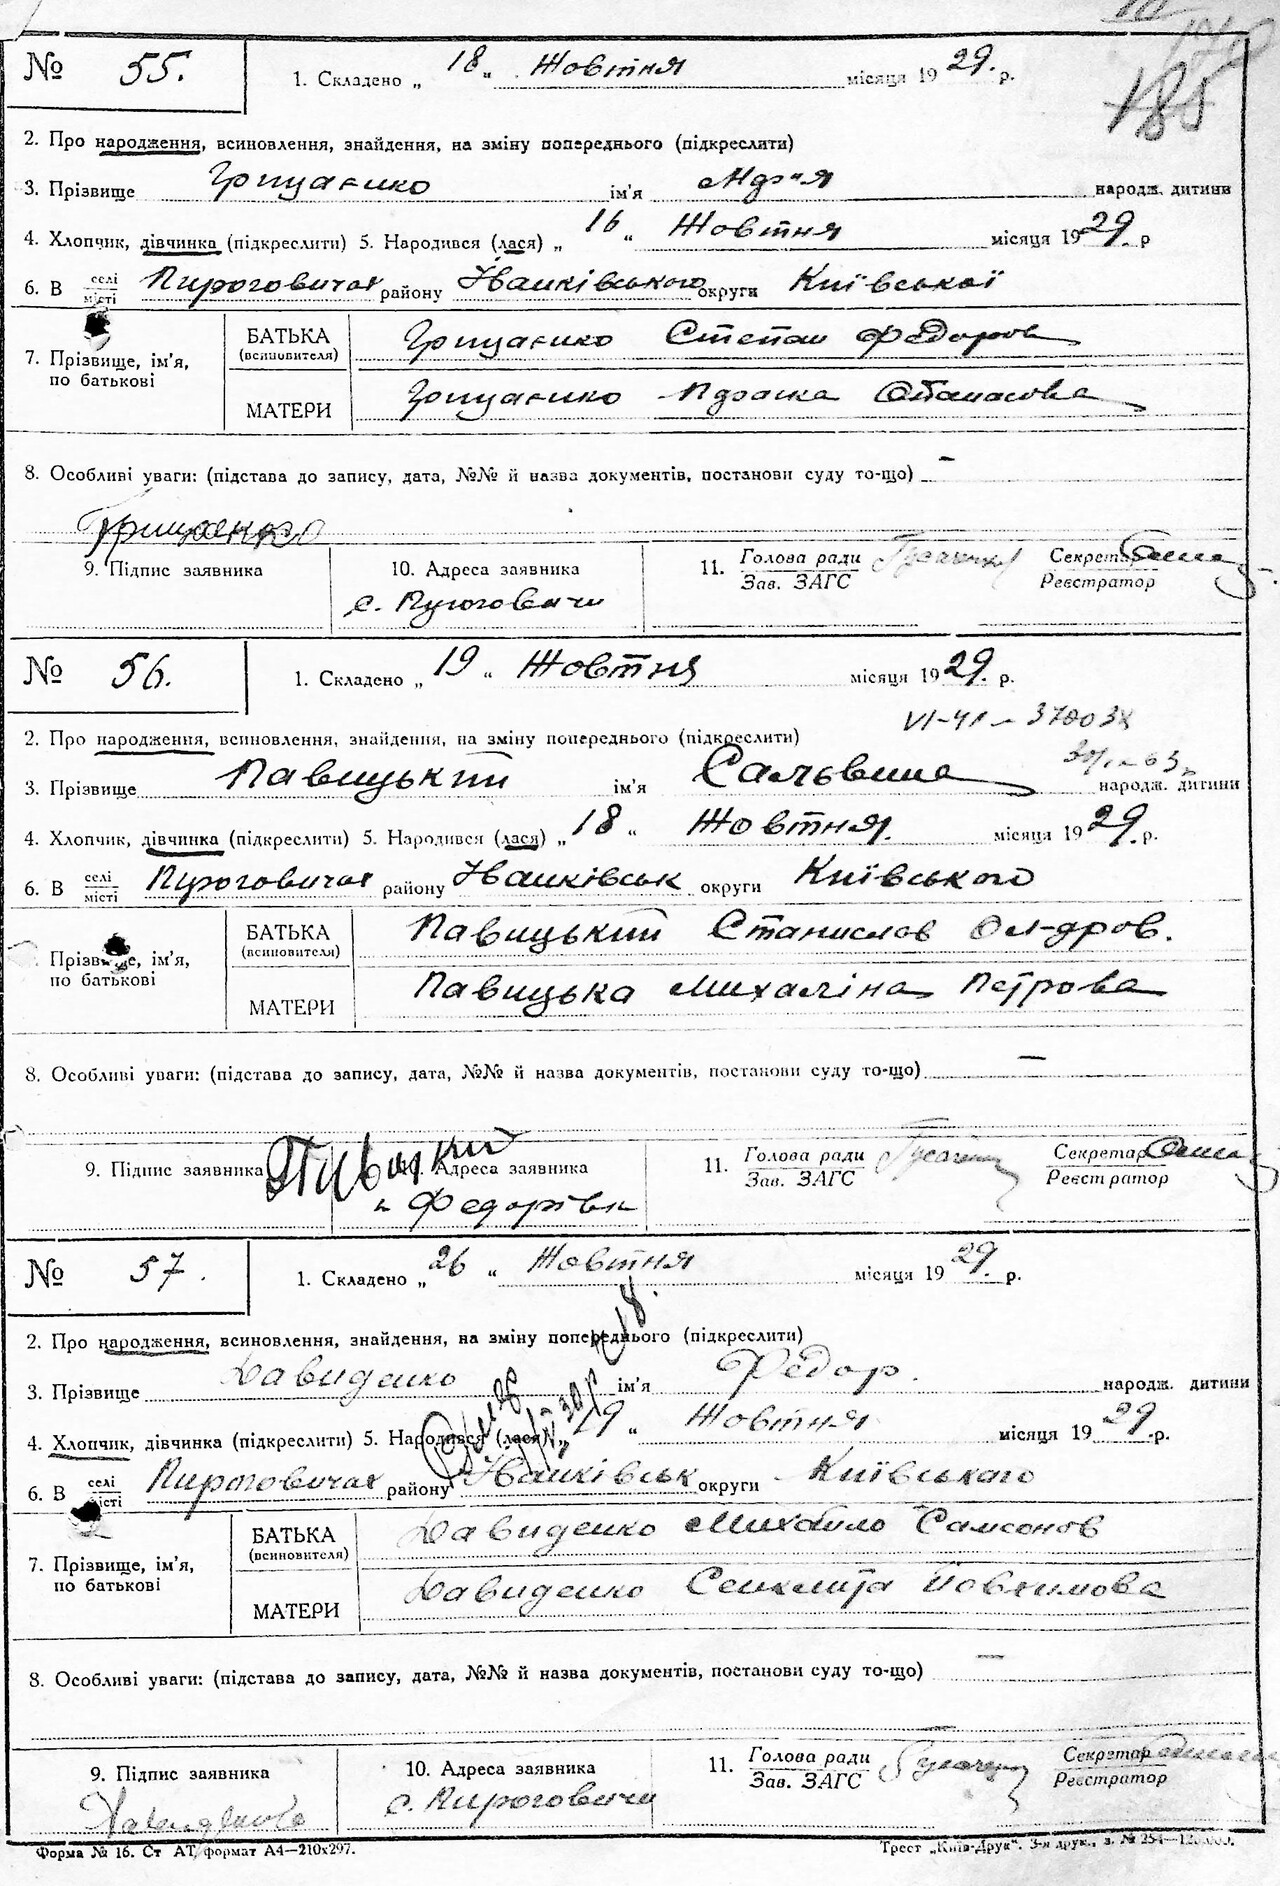 185
№ 55. 1. Складено „ 18 „ Жовтня місяця 1929. р.
2. Про народження, всиновлення, знайдення, на зміну попереднього (підкреслити)
3. Прізвище Грищенко ім'я народж. дитини
4. Хлопчик, дівчинка (підкреслити) 5. Народився (лася) „ 16 „ Жовтня місяця 1929. р
6. В селі місті Пироговичах району Іванківського округи Київської
7. Прізвище, ім'я, по батькові
БАТЬКА (всиновителя) Грищенко Степан Федоров
МАТЕРИ Грищенко
8. Особливі уваги: (підстава до запису, дата, №№ й назва документів, постанови суду то-що) —
Грищенко
9. Підпис заявника 10. Адреса заявника 11. Голова ради Зав. ЗАГС Секретар Реєстратор
с. Пироговичи
№ 56. 1. Складено „ 19 „ Жовтня місяця 1929. р.
VI-41
2. Про народження, всиновлення, знайдення, на зміну попереднього (підкреслити)
3. Прізвище Павицький ім'я Сальвина народж. дитини
4. Хлопчик, дівчинка (підкреслити) 5. Народився (лася) „ 18 „ Жовтня. місяця 1929. р.
6. В селі місті Пироговичах району Іванківськ округи Київського
Прізвище, ім'я, по батькові
БАТЬКА (всиновителя) Павицький Станислов Ол-дров.
МАТЕРИ Павицька Михаліна Петрова
8. Особливі уваги: (підстава до запису, дата, №№ й назва документів, постанови суду то-що) —
9. Підпис заявника Адреса заявника 11. Голова ради Зав. ЗАГС Секретар Реєстратор
Федорівка
№ 57. 1. Складено „ 26 „ Жовтня місяця 1929. р.
2. Про народження, всиновлення, знайдення, на зміну попереднього (підкреслити)
3. Прізвище Давиденко ім'я Федор. народж. дитини
4. Хлопчик, дівчинка (підкреслити) 5. Народився (лася) „ 19 „ Жовтня місяця 1929. р.
6. В селі місті Пироговичах району Іванківськ округи Київського
7. Прізвище, ім'я, по батькові
БАТЬКА (всиновителя) Давиденко Михайло Самсонов
МАТЕРИ Давиденко Секлита
8. Особливі уваги: (підстава до запису, дата, №№ й назва документів, постанови суду то-що) —
9. Підпис заявника 10. Адреса заявника 11. Голова ради Зав. ЗАГС Секретар Реєстратор
с. Пироговичи
Форма № 16. Ст АТ, формат А4—210х297. Трест „Київ-Друк". 3-я друк., з. № 254—